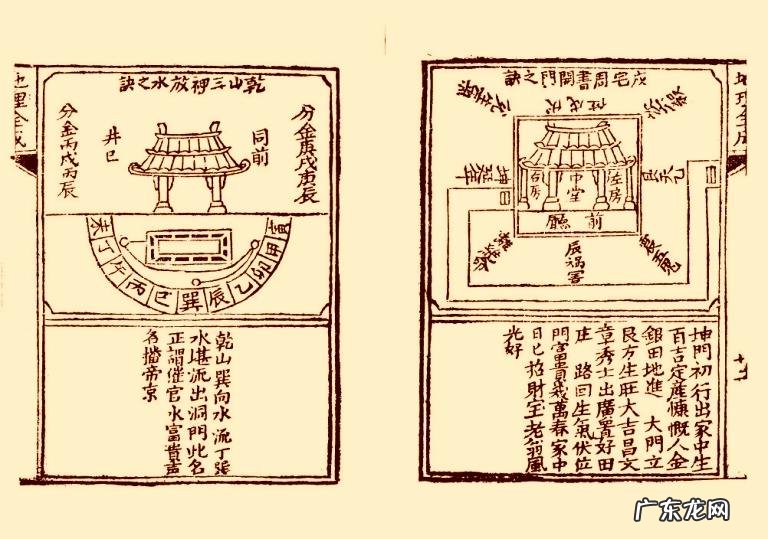 戍宅周書開門之訣
坤延年
中堂
左房
右房
前廳
辰禍害
坤門初行出家中生
百吉定産慷慨人金
銀田地進 大門立
艮方生旺大吉昌文
章秀士出廣置好田
庄 路回生氣伏位
門富貴袞萬春家中
日已招財宝老翁風
光好
乾山三神放水之訣
分金庚戌庚辰
同前
井巳
分金丙戌丙辰
甲
卯
乙
辰
巽
巳
丙
午
丁
未
乾山巽向水流丁張
水堪流出洞門此名
正謂催官水富貴声
名擋帝京
地理全成
广东龙网